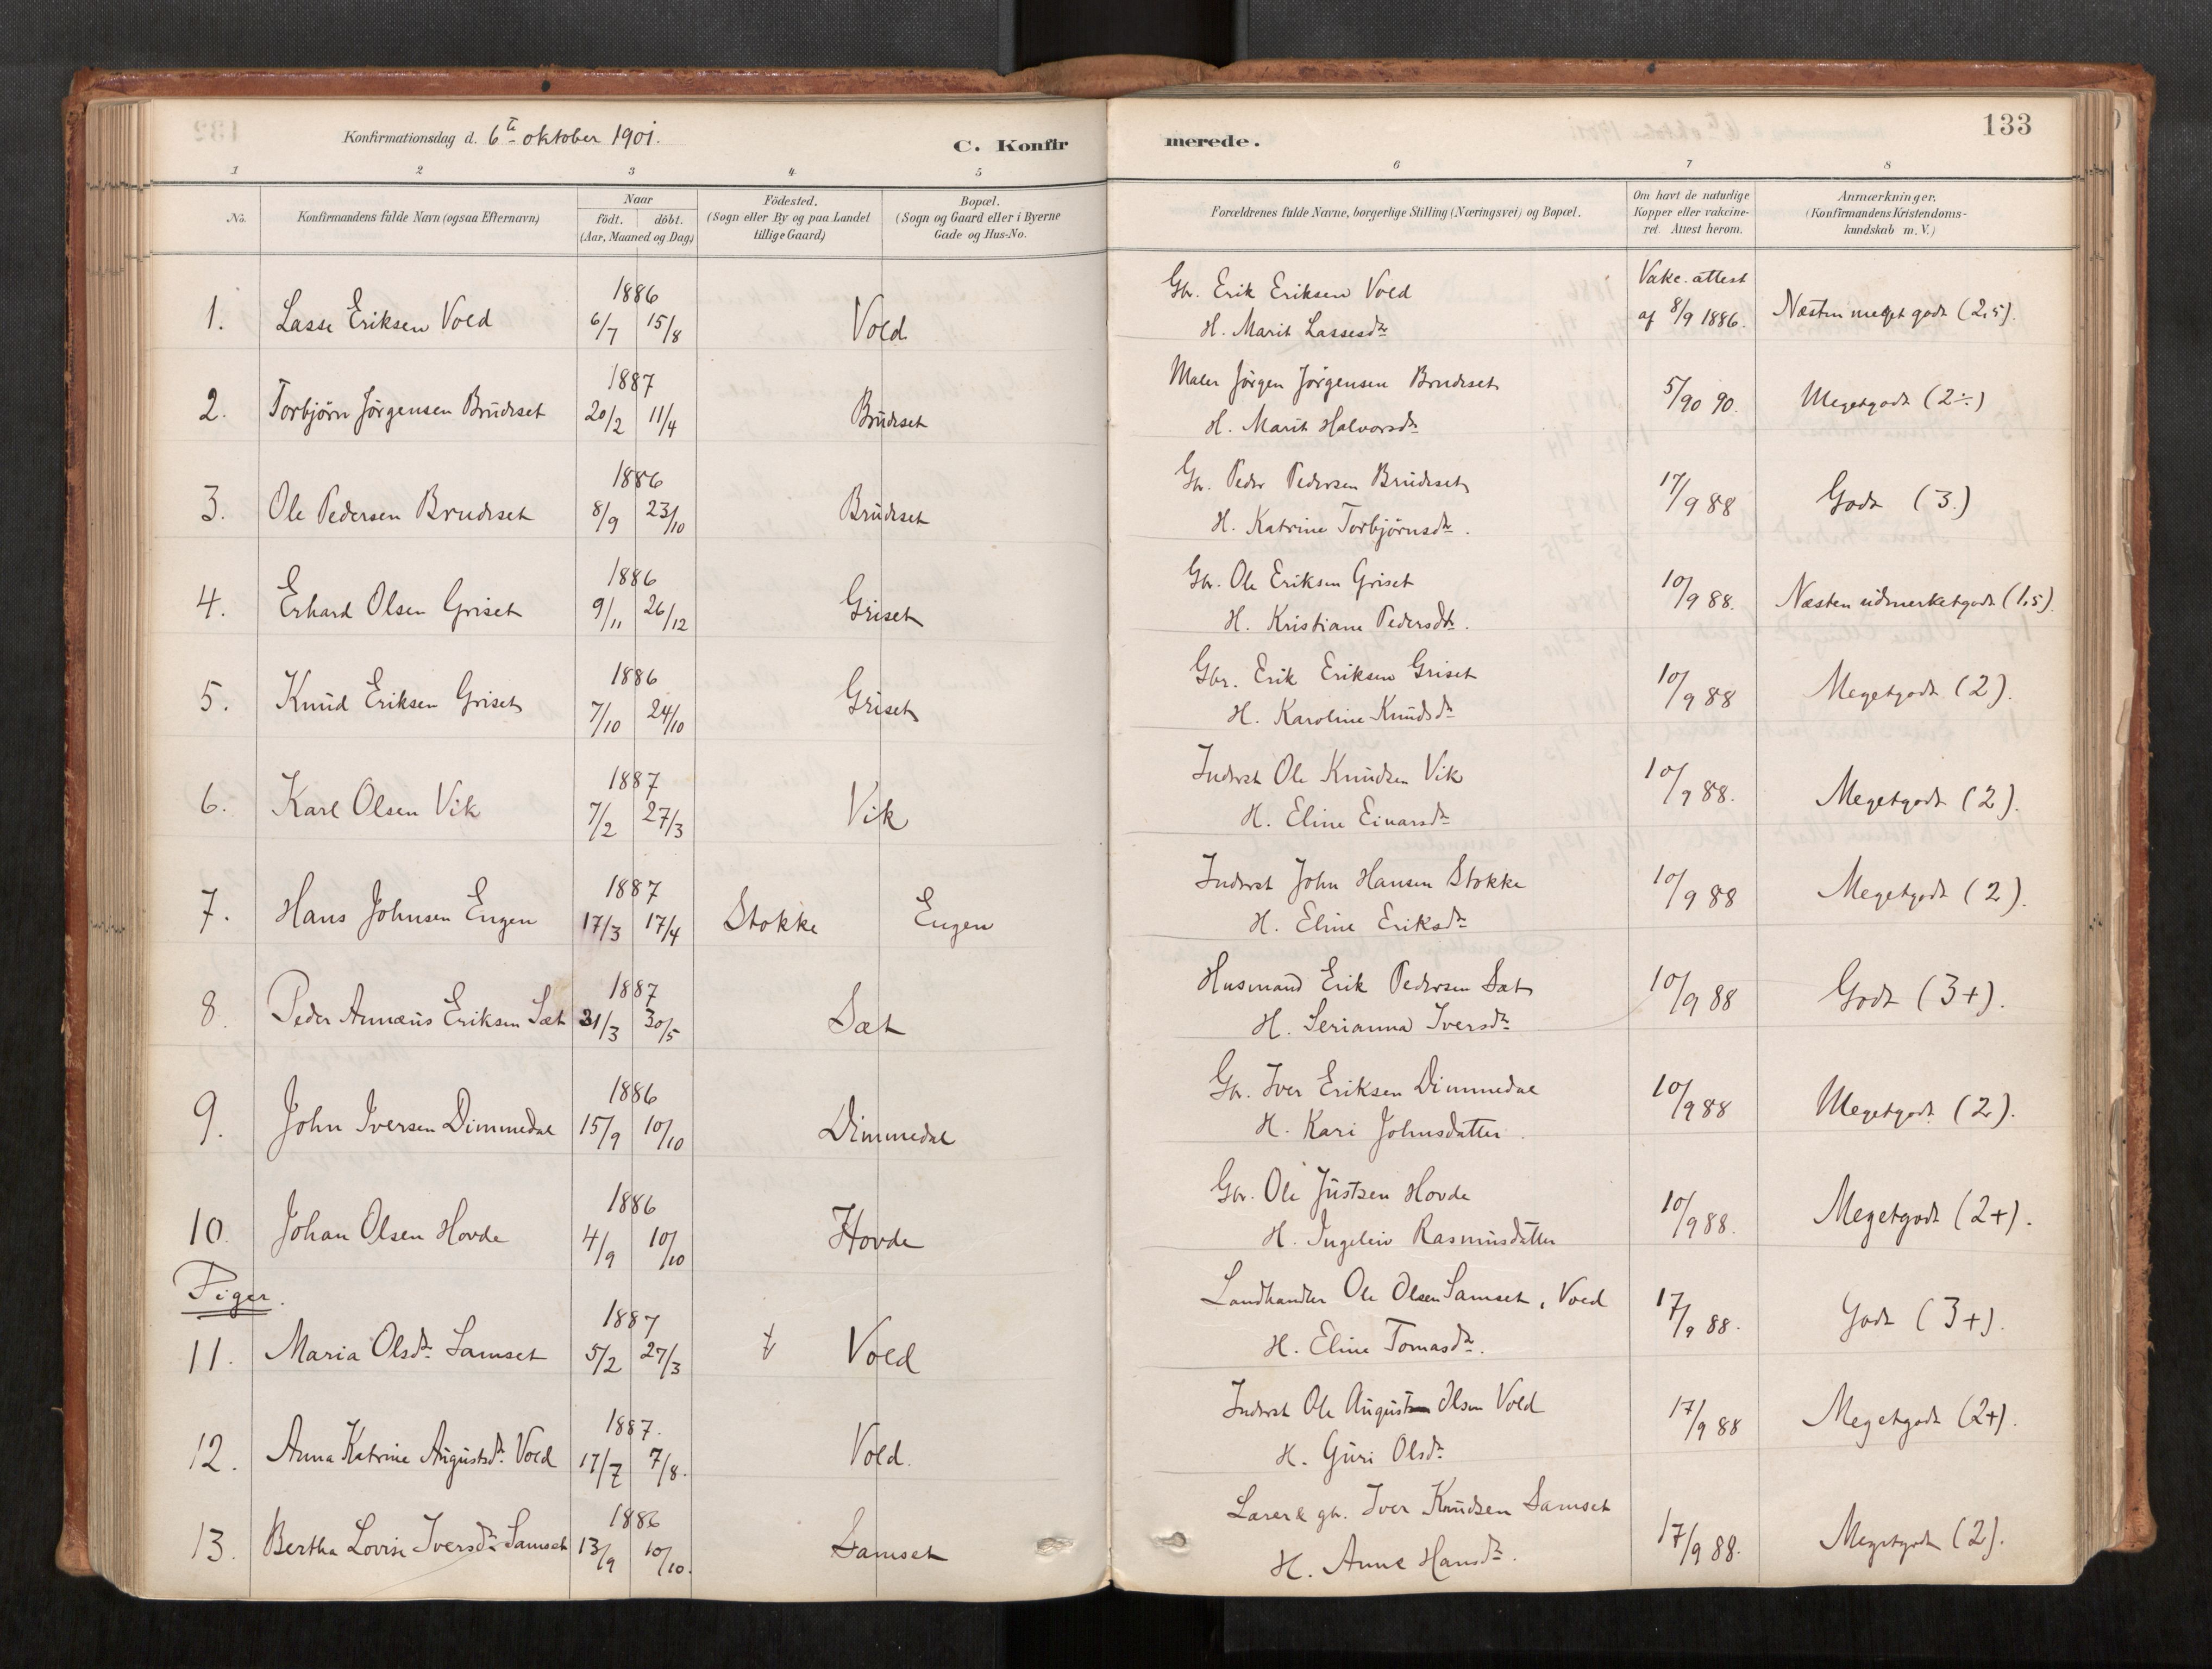 Konfirmationsdag d. 6te oktober 1901.
C. Konfirmerede.
133
1 2 3 4 5 6 7 8
No.
Konfirmandens fulde Navn (ogsaa Efternavn)
Naar
født. døbt.
(Aar, Maaned og Dag.)
Fødested.
(Sogn eller By og paa Landet
tillige Gaard)
Bopæl.
(Sogn og Gaard eller i Byerne
Gade og Hus-No.
Forældrenes fulde Navne, borgerlige Stilling (Næringsvei) og Bopæl.
Om havt de naturlige
Kopper eller vakcine-
ret. Attest herom.
Anmærkninger.
(Konfirmandens Kristendoms-
kundskab m. V.)
1886 Gbr. Erik Eriksen Vold Vakc. attest
1. Lasse Eriksen Vold 6/7 15/8 Vold H. Marit Lassesdtr af 8/9 1886. Næsten meget godt (2,5).
1887 Maler Jørgen Jørgensen Brudeset
2. Torbjørn Jørgensen Brudeset 20/2 11/4 Brudeset H. Marit Halvorsdtr 5/90 90. Megetgodt (2÷)
1886 Gbr. Peder Pedersen Brudeset
3. Ole Pedersen Brudeset 8/9 23/10 Brudeset H. Katrine Torbjørnsdtr. 17/9 88 Godt (3)
1886 Gbr. Ole Eriksen Griset
4. Erhard Olsen Griset 9/11 26/12 Griset H. Kristiane Pedersdtr. 10/9 88. Næsten udmerketgodt (1,5).
1886 Gbr. Erik Eriksen Griset
5. Knud Eriksen Griset 7/10 24/10 Griset H. Karoline Knudsdtr 10/9 88 Megetgodt (2).
1887 Inderst Ole Knudsen Vik
6. Karl Olsen Vik 7/2 27/3 Vik H. Eline Einarsdtr 10/9 88. Megetgodt (2).
1887 Inderst John Hansen Stokke
7. Hans Johnsen Engen 17/3 17/4 Stokke Engen H. Eline Eriksdtr 10/9 88 Megetgodt (2).
1887 Husmand Erik Pedersen Sæt
8. Peder Annæus Eriksen Sæt 31/3 30/5 Sæt H. Serianna Iversdtr 10/9 88 Godt (3+).
1886 Gbr. Iver Eriksen Dimmedal
9. John Iversen Dimmedal 15/9 10/10 Dimmedal H. Kari Johnsdatter. 10/9 88 Megetgodt (2).
1886 Gbr. Ole Justsen Hovde
10. Johan Olsen Hovde 4/9 10/10 Hovde H. Ingeleiv Rasmusdatter 10/9 88. Megetgodt (2+).
Piger.
1887 Landhandler Ole Olsen Samset, Vold
11. Maria Olsdtr. Samset 5/2 27/3 Vold H. Eline Tomasdtr. 17/9 88. Godt (3+).
1887. Inderst Ole August Olsen Vold
12. Anna Katrine Augustsdtr. Vold 17/7 7/8. Vold. H. Guri Olsdtr. 17/9 88 Megetgodt (2+).
1886 Lærer & gbr. Iver Knudsen Samset
13. Bertha Lovise Iversdtr Samset 13/9 10/10. Samset H. Anne Hansdtr. 17/9 88. Megetgodt (2).